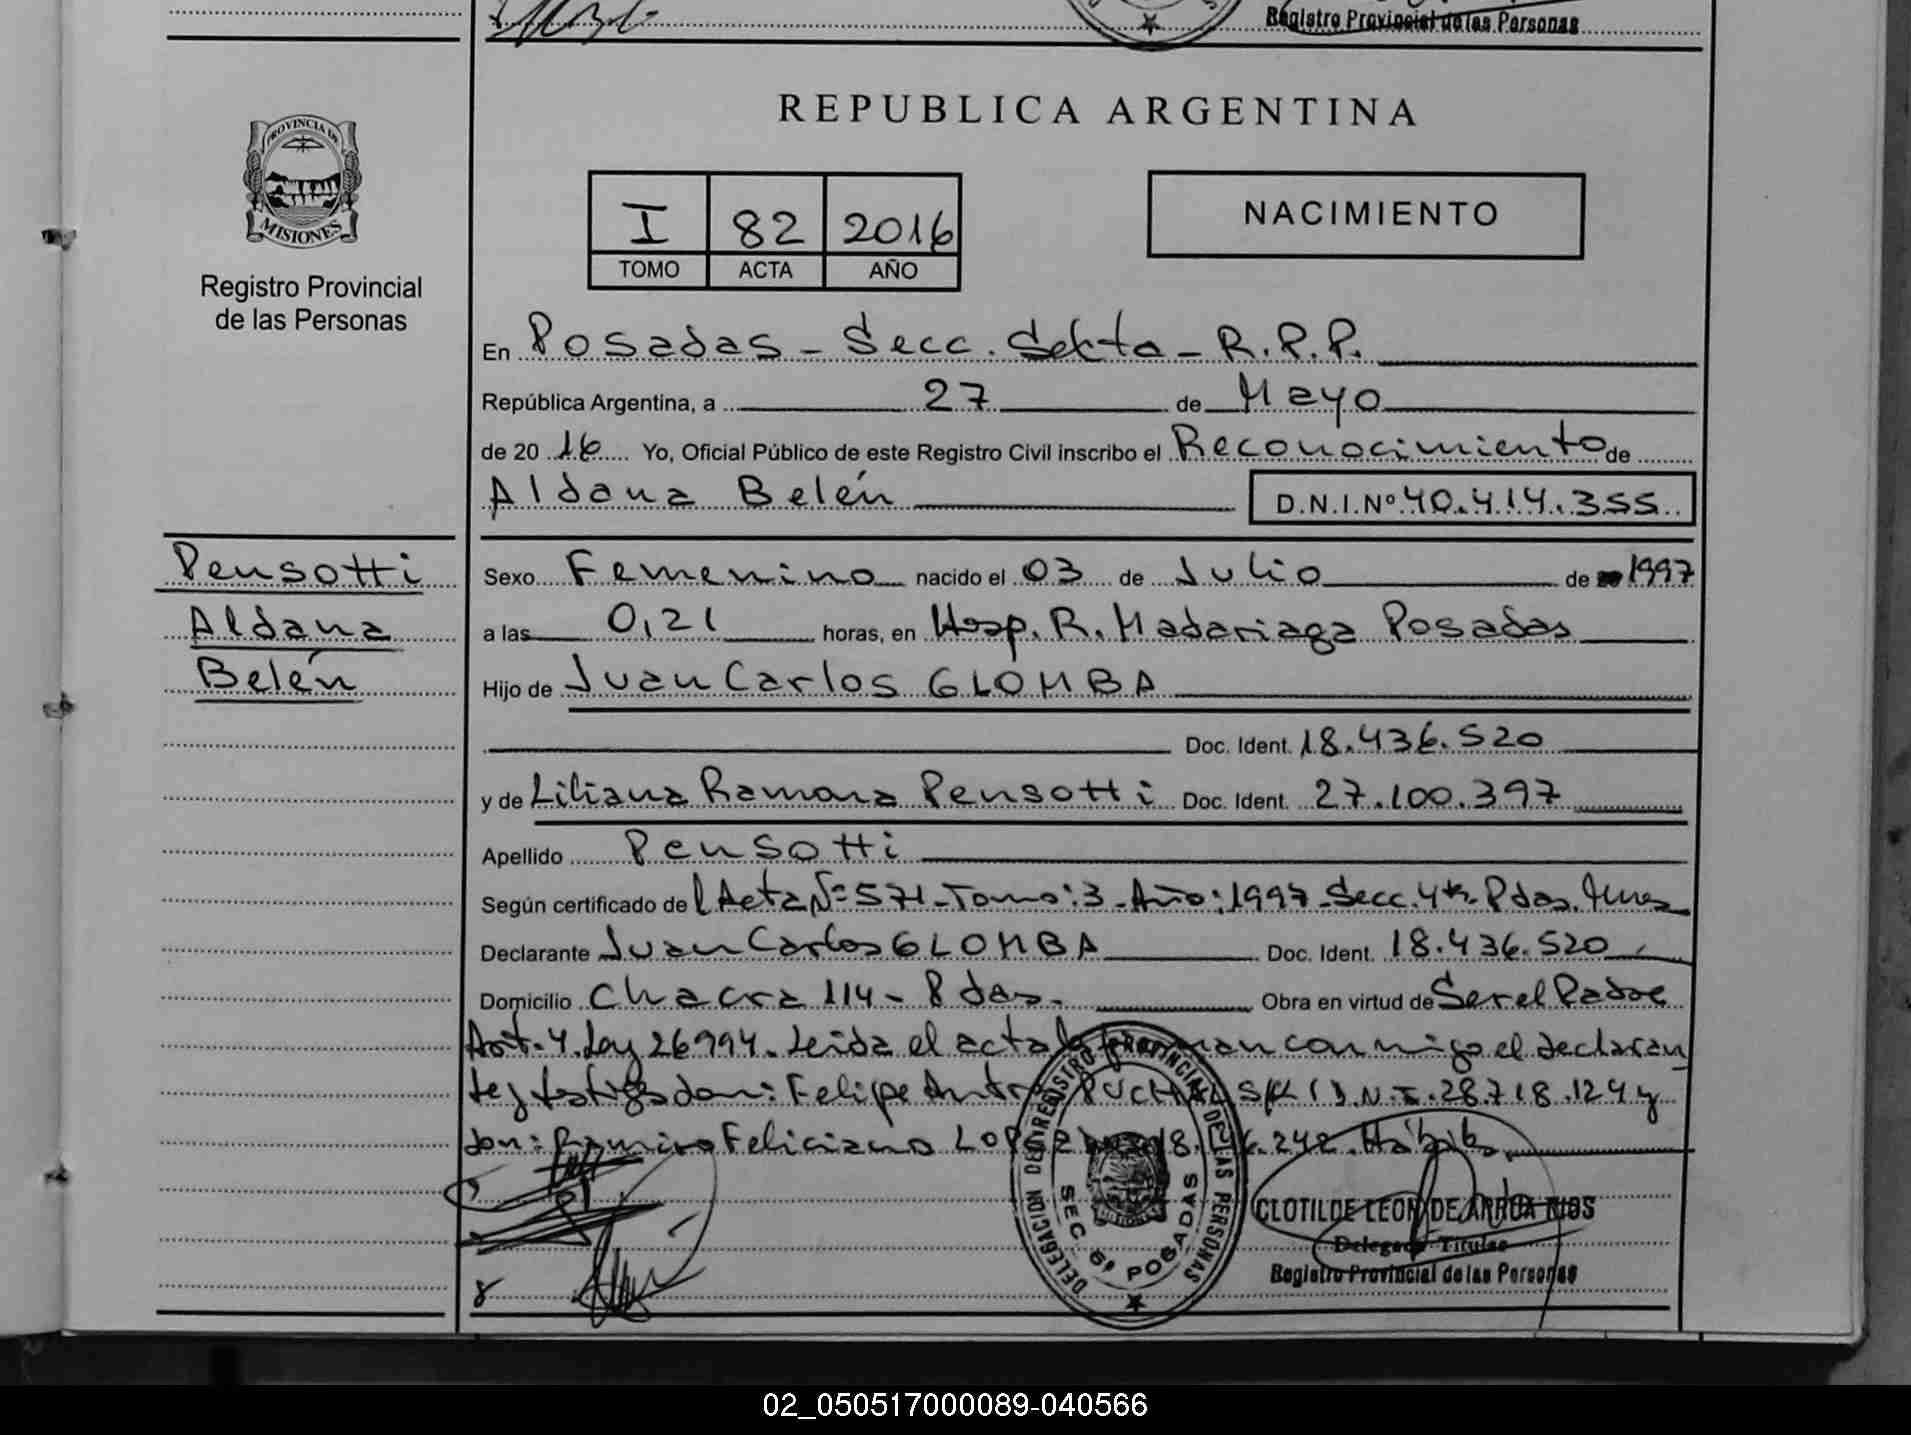 Registro Provincial de las Personas
REPUBLICA ARGENTINA
PROVINCIA DE
MISIONES
Registro Provincial
de las Personas
I 82 2016
TOMO ACTA AÑO
NACIMIENTO
En Posadas - Secc. Sexta - R.P.P.
República Argentina, a 27 de Mayo
de 20 16 Yo, Oficial Público de este Registro Civil inscribo el Reconocimiento de
Aldana Belén D.N.I.Nº 40.414.355
Pensotti
Aldana
Belén
Sexo Femenino nacido el 03 de Julio de 1997
a las 0,21 horas, en Hosp. R. Madariaga Posadas
Hijo de Juan Carlos GLOMBA
Doc. Ident. 18.436.520
y de Liliana Ramona Pensotti Doc. Ident. 27.100.397
Apellido Pensotti
Según certificado de l Acta Nº 571 - Tomo: 3 - Año: 1997 - Secc. 4ta. Pdas. Mnes
Declarante Juan Carlos GLOMBA Doc. Ident. 18.436.520
Domicilio Chacra 114 - Pdas. Obra en virtud de Ser el Padre
Art. 4. Ley 26994. Leida el acta la firman conmigo el declaran
te y testigos don: Felipe D.N.I. 28.718.124 y
don: Ramiro Feliciano
DELEGACION DEL REGISTRO PROVINCIAL DE LAS PERSONAS
SEC 6ª POSADAS
CLOTILDE LEON DE ARRUA RIOS
Delegada Titular
Registro Provincial de las Personas
02_050517000089-040566